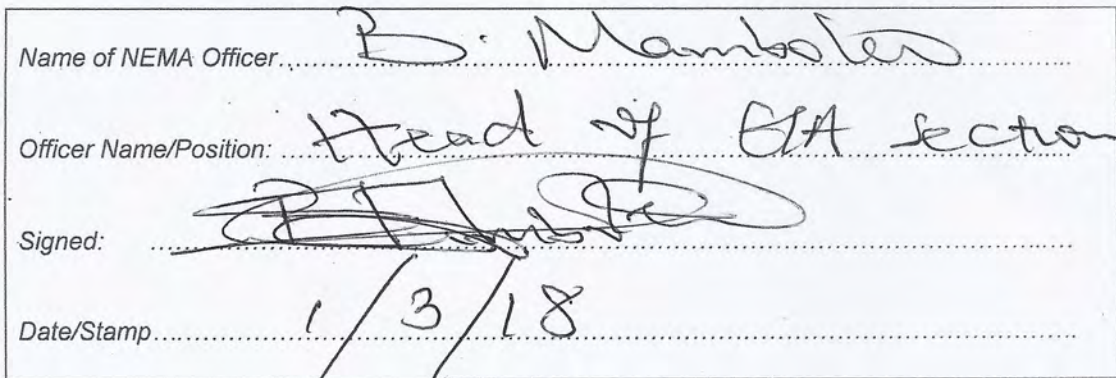 Name of NEMA Officer B. Mamboleo
Officer Name/Position: Head of EIA section
Signed:
Date/Stamp 1/3/18